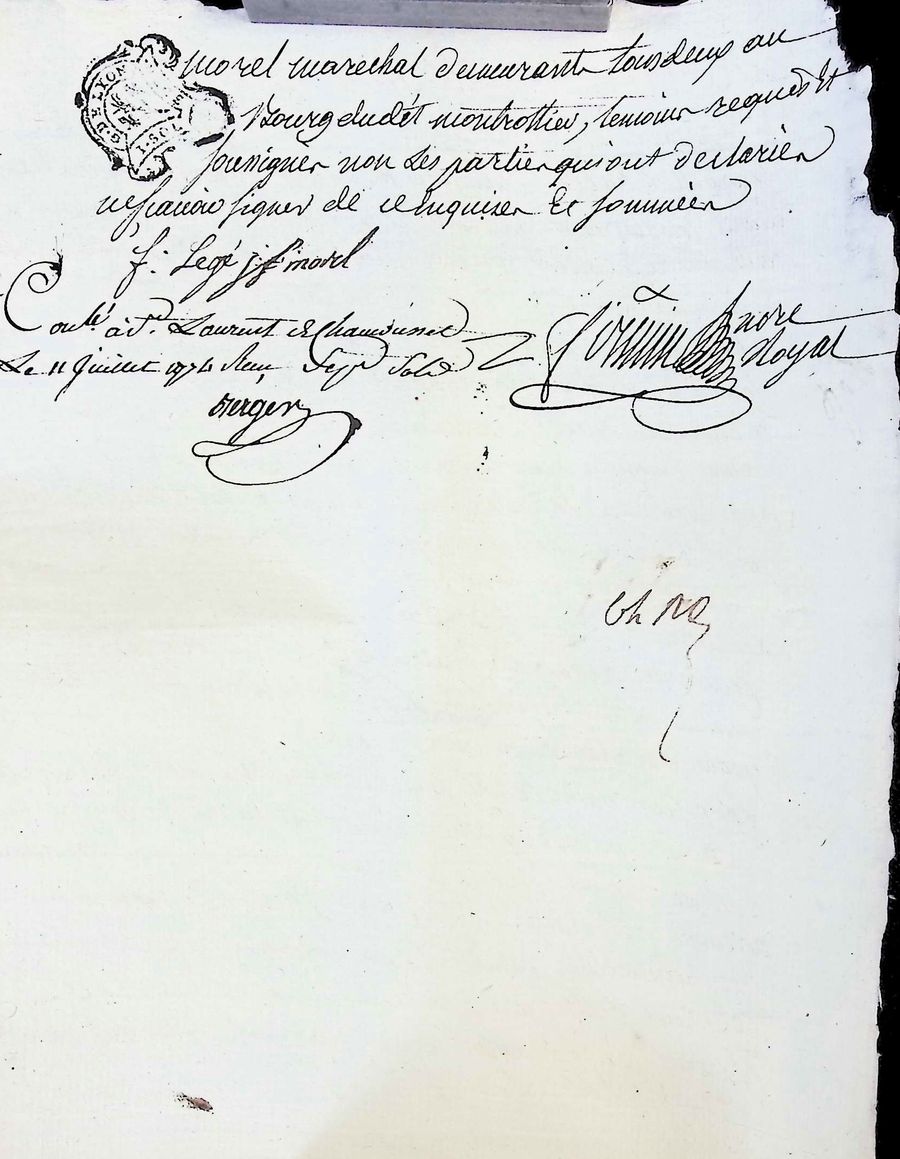 G. DE LYON
1. SOL
morel marechal demeurants tous deux au
Bourg dudit montrottier, temoins requis Et
soussignes non Les parties qui ont declarées
ne scavoir signer de ce enquises Et sommées
f: Legé j f morel
Conlé à St. Laurent de Chamousset
Le 11 Juillet 1774 Reçu Sept Sols
Berger
nore Royal